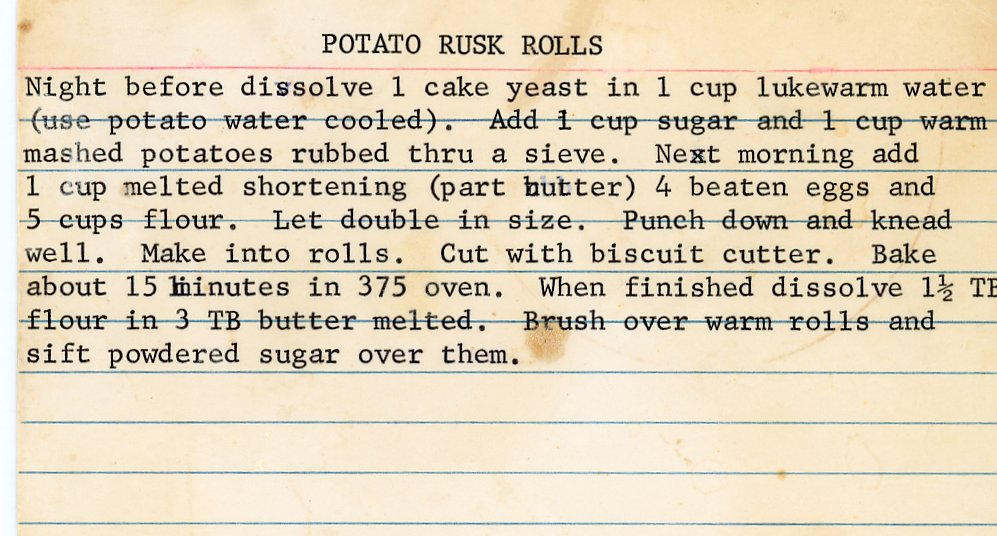 POTATO RUSK ROLLS
Night before dissolve 1 cake yeast in 1 cup lukewarm water
(use potato water cooled). Add 1 cup sugar and 1 cup warm
mashed potatoes rubbed thru a sieve. Next morning add
1 cup melted shortening (part butter) 4 beaten eggs and
5 cups flour. Let double in size. Punch down and knead
well. Make into rolls. Cut with biscuit cutter. Bake
about 15 minutes in 375 oven. When finished dissolve 1½ TB
flour in 3 TB butter melted. Brush over warm rolls and
sift powdered sugar over them.